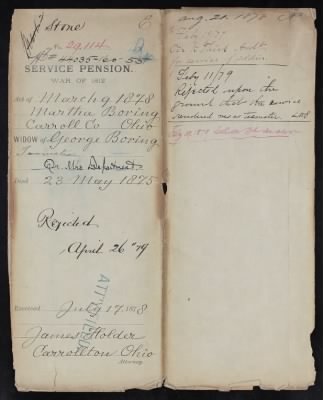 Stone
No 29,114
44035-160-55
SERVICE PENSION.
WAR OF 1812
Act of March 9 1878
Martha Boring
Carroll Co Ohio
WIDOW of George Boring
Teamster
Qr. Mrs Department
Died 23 May 1875
Rejected
April 26" 79
ATTESTED
Received July 17, 1878
James Holder
Carrollton Ohio
Attorney.
Aug. 21. 1878
Feby 1879
for service of soldier
Feby 11/79
Rejected upon the
ground that the service
rendered was as teamster